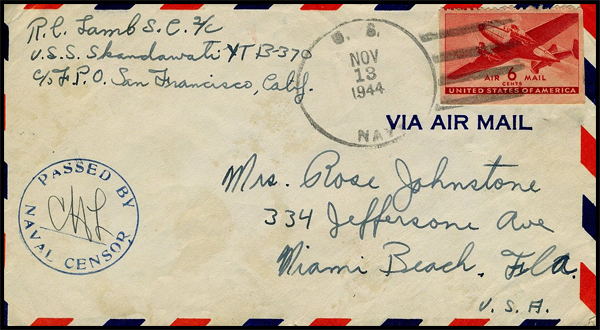 R.L. Lamb S.C. 2/c
U.S.S. Skandawati YT B-370
c/o F.P.O. San Francisco, Calif.
U. S.
NOV
13
1944
NAVY
AIR 6 MAIL
CENTS
UNITED STATES OF AMERICA
VIA AIR MAIL
PASSED BY
NAVAL CENSOR
Mrs. Rose Johnstone
334 Jeffersone Ave
Miami Beach, Fla.
U.S.A.